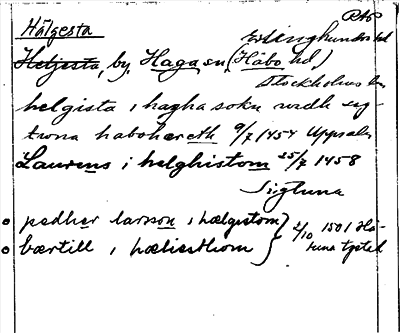 RAP
Hälgesta Erlinghundra hd
Heljesta, by, Haga sn (Håbo hd)
Stockholms län
helgista i hagha sokn widh sig-
tuna habohæreth 9/7 1454 Uppsala
Laurens i helghistom 25/7 1458
Sigtuna
pedher larsson i hælgistom
bærtill i hæliesthom
2/10 1501 Hå-
tuna tgstad